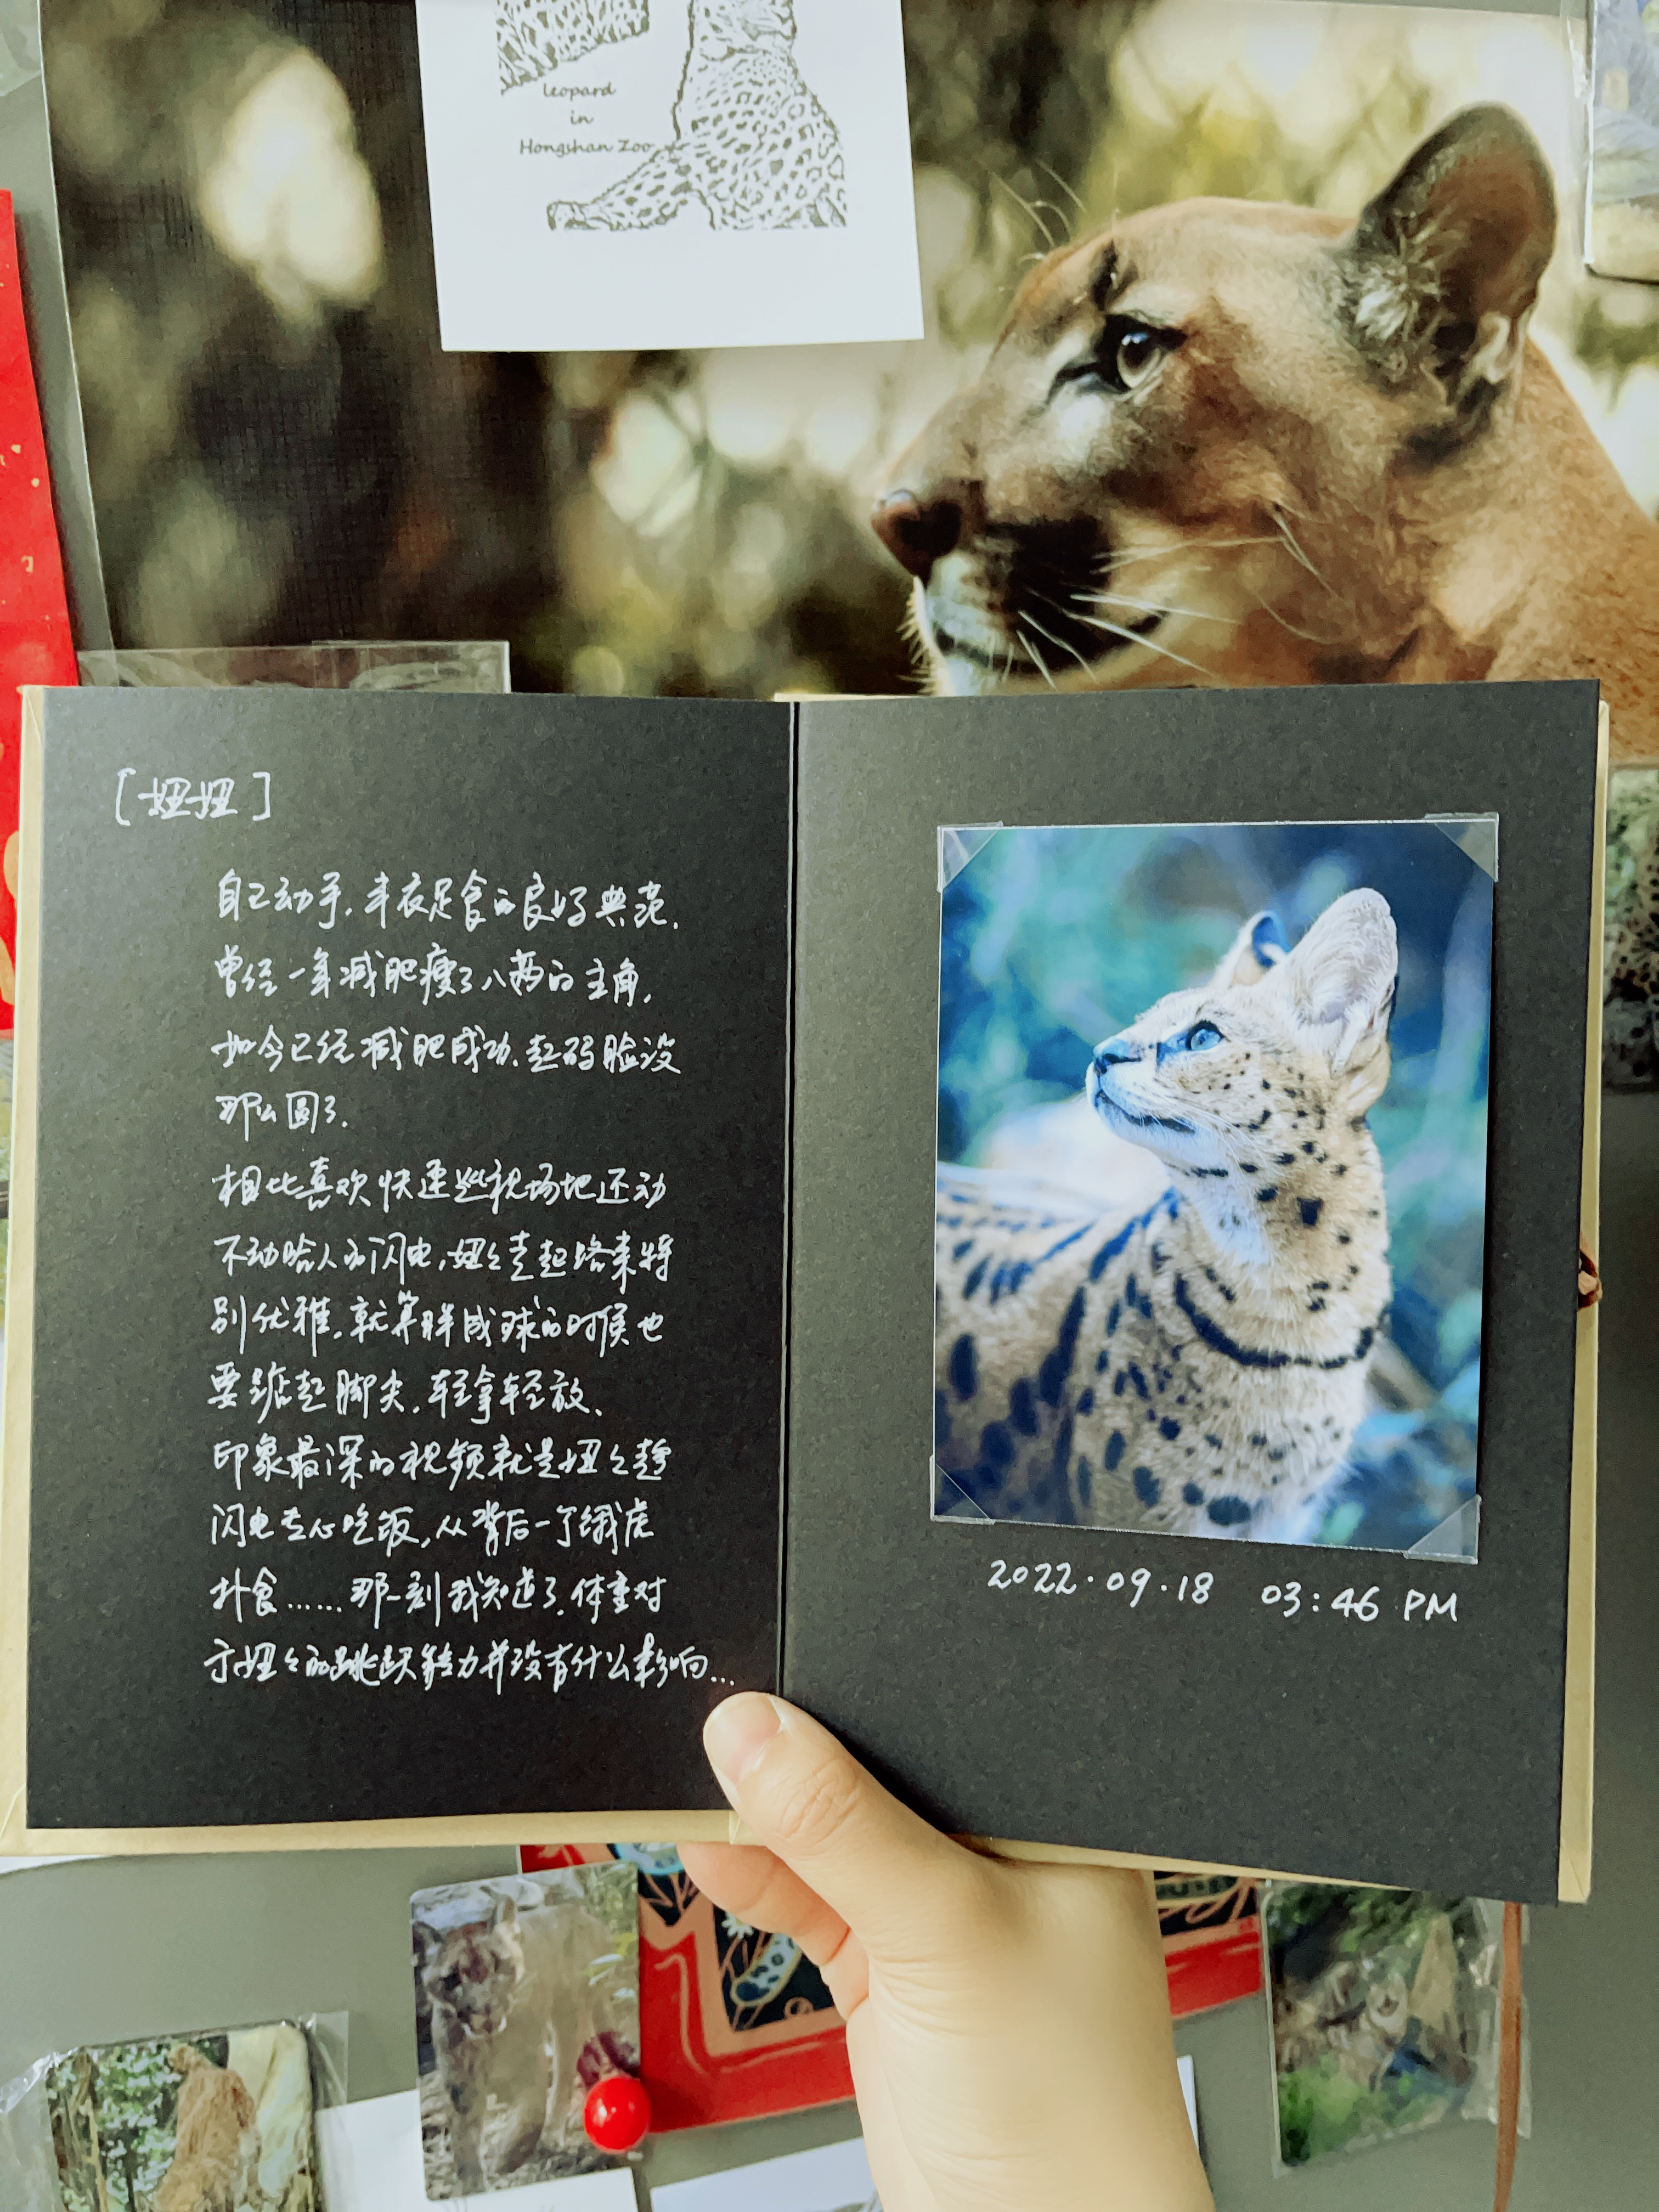 leopard
in
Hongshan Zoo
[妞妞]
自己动手,丰衣足食的良好典范.
曾经一年减肥瘦了八两的主角,
如今已经减肥成功,起码脸没
那么圆了.
相比喜欢快速巡视场地还动
不动哈人的闪电,妞々走起路来特
别优雅,就算胖成球的时候也
要踮起脚尖,轻拿轻放、
印象最深的视频就是妞々趁
闪电专心吃饭,从背后一个饿虎
扑食……那一刻我知道了,体重对
于妞々的跳跃能力并没有什么影响…
2022.09.18 03:46 PM